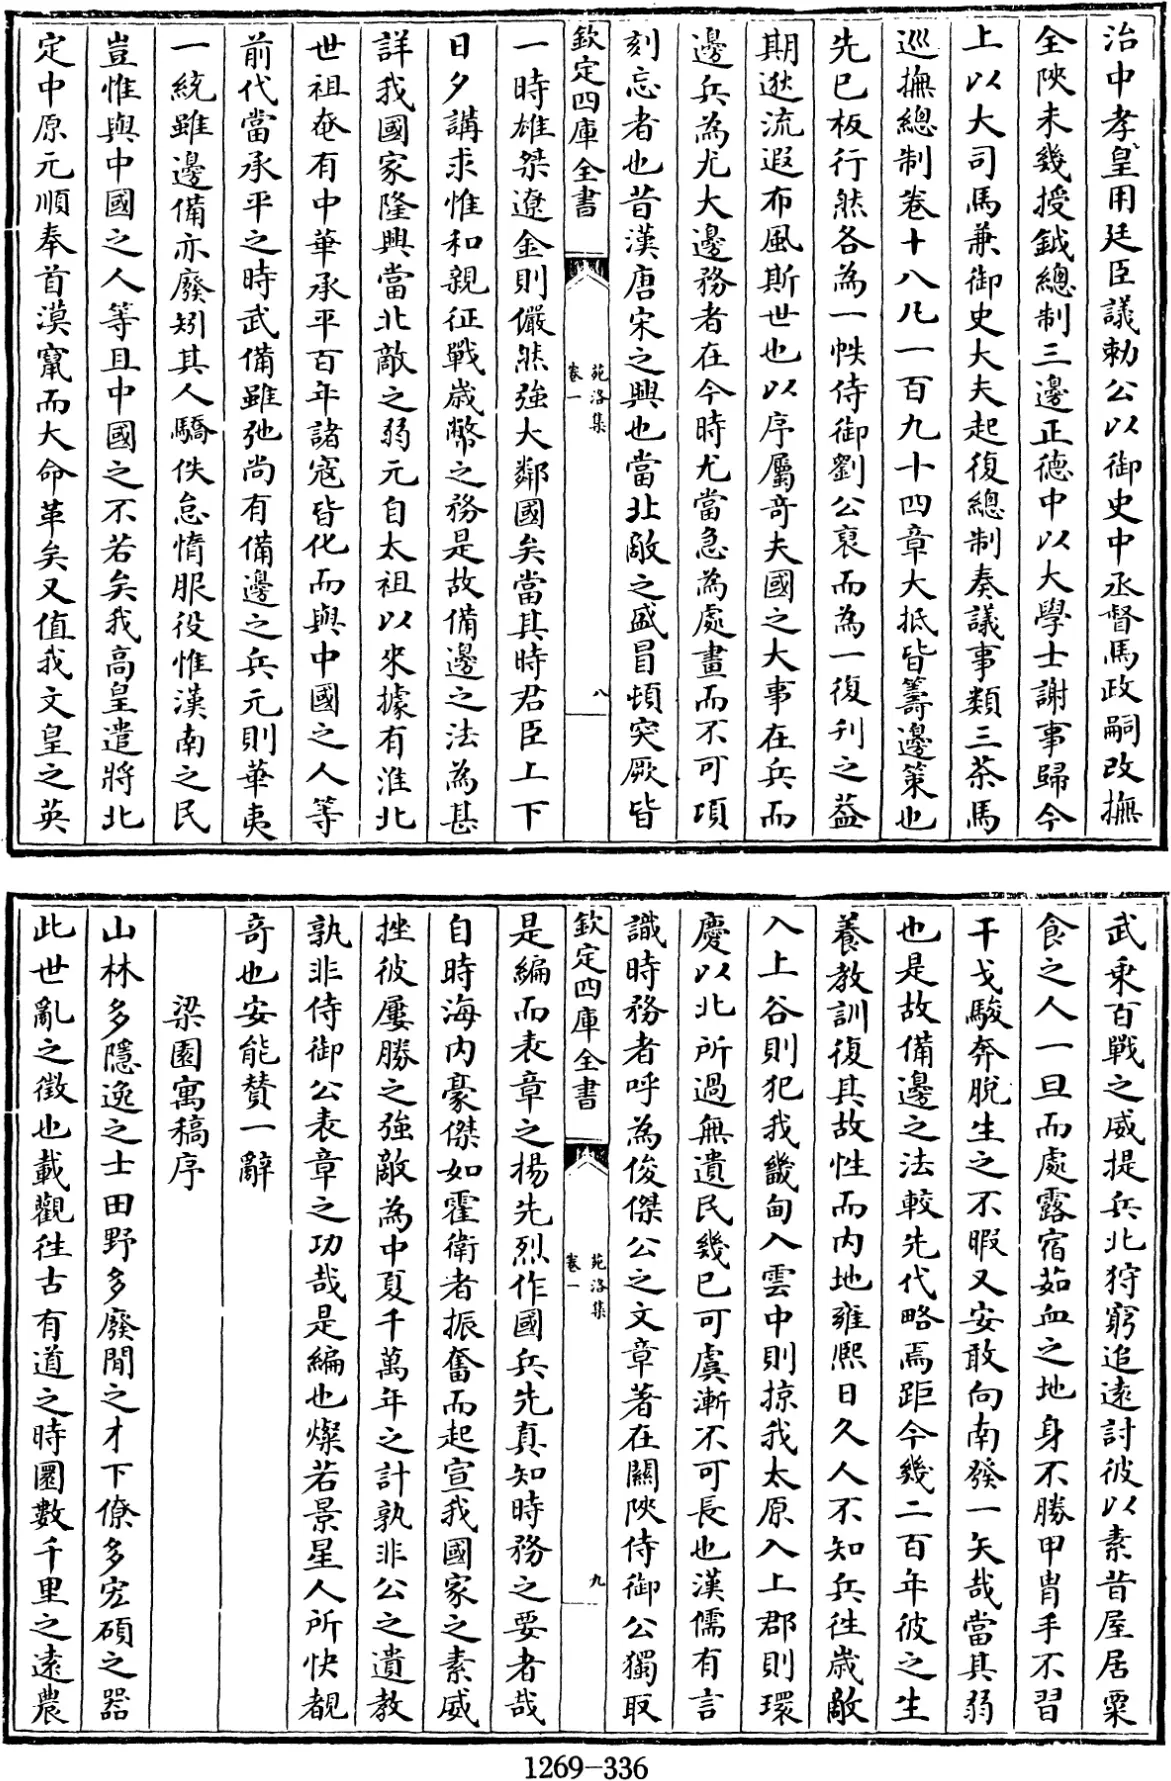 治中孝皇用廷臣議勅公以御史中丞督馬政嗣改撫
全陜未幾授鉞總制三邊正德中以大學士謝事歸今
上以大司馬兼御史大夫起復總制奏議事類三茶馬
巡撫總制卷十八凡一百九十四章大抵皆籌邊策也
先已板行然各為一帙侍御劉公裒而為一復刋之益
期逖流遐布風斯世也以序屬竒夫國之大事在兵而
邊兵為尤大邊務者在今時尤當急為處畫而不可頃
刻忘者也昔漢唐宋之興也當北敵之盛冒頓突厥皆
欽定四庫全書
苑洛集
卷一
八
一時雄桀遼金則儼然強大鄰國矣當其時君臣上下
日夕講求惟和親征戰歲幣之務是故備邊之法為甚
詳我國家隆興當北敵之弱元自太祖以來據有淮北
世祖奄有中華承平百年諸寇皆化而與中國之人等
前代當承平之時武備雖弛尚有備邊之兵元則華夷
一統雖邊備亦廢矧其人驕佚怠惰服役惟漢南之民
豈惟與中國之人等且中國之不若矣我高皇遣將北
定中原元順奉首漠竄而大命革矣又值我文皇之英
武乗百戰之威提兵北狩窮追遠討彼以素昔屋居粟
食之人一旦而處露宿茹血之地身不勝甲胄手不習
干戈駿奔脱生之不暇又安敢向南發一矢哉當其弱
也是故備邊之法較先代略焉距今幾二百年彼之生
養教訓復其故性而内地雍熙日久人不知兵徃歲敵
入上谷則犯我畿甸入雲中則掠我太原入上郡則環
慶以北所過無遺民幾已可虞漸不可長也漢儒有言
識時務者呼為俊傑公之文章著在關陜侍御公獨取
欽定四庫全書
苑洛集
卷一
九
是編而表章之揚先烈作國兵先真知時務之要者哉
自時海内豪傑如霍衛者振奮而起宣我國家之素威
挫彼屢勝之強敵為中夏千萬年之計孰非公之遺教
孰非侍御公表章之功哉是編也燦若景星人所快覩
竒也安能賛一辭
梁園寓稿序
山林多隱逸之士田野多廢閒之才下僚多宏碩之器
此世亂之徵也載觀徃古有道之時圜數千里之逺農
1269-336